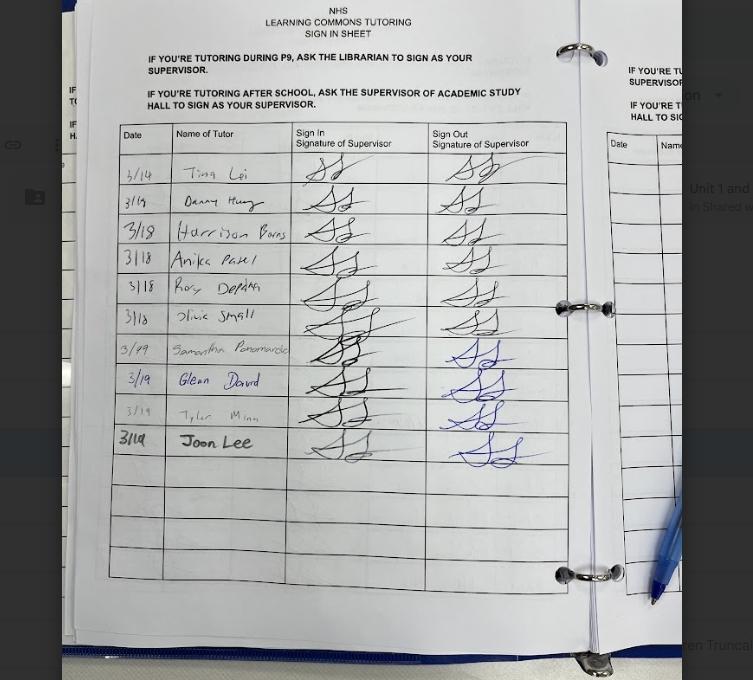 NHS
LEARNING COMMONS TUTORING
SIGN IN SHEET
IF YOU'RE TUTORING DURING P9, ASK THE LIBRARIAN TO SIGN AS YOUR
SUPERVISOR.
IF YOU'RE TUTORING AFTER SCHOOL, ASK THE SUPERVISOR OF ACADEMIC STUDY
HALL TO SIGN AS YOUR SUPERVISOR.
Date Name of Tutor Sign In Signature of Supervisor Sign Out Signature of Supervisor
3/14 Tina Lei
Danny
3/18 Harrison
3/18 Anika Patel
3/18 Rory
3/18 Olivia Small
Samantha
3/19 Glenn David
3/19 Tyler
3/19 Joon Lee
IF YOU'RE
SUPERVISOR
IF YOU'RE
HALL TO
Date
Unit 1 and
in Shared